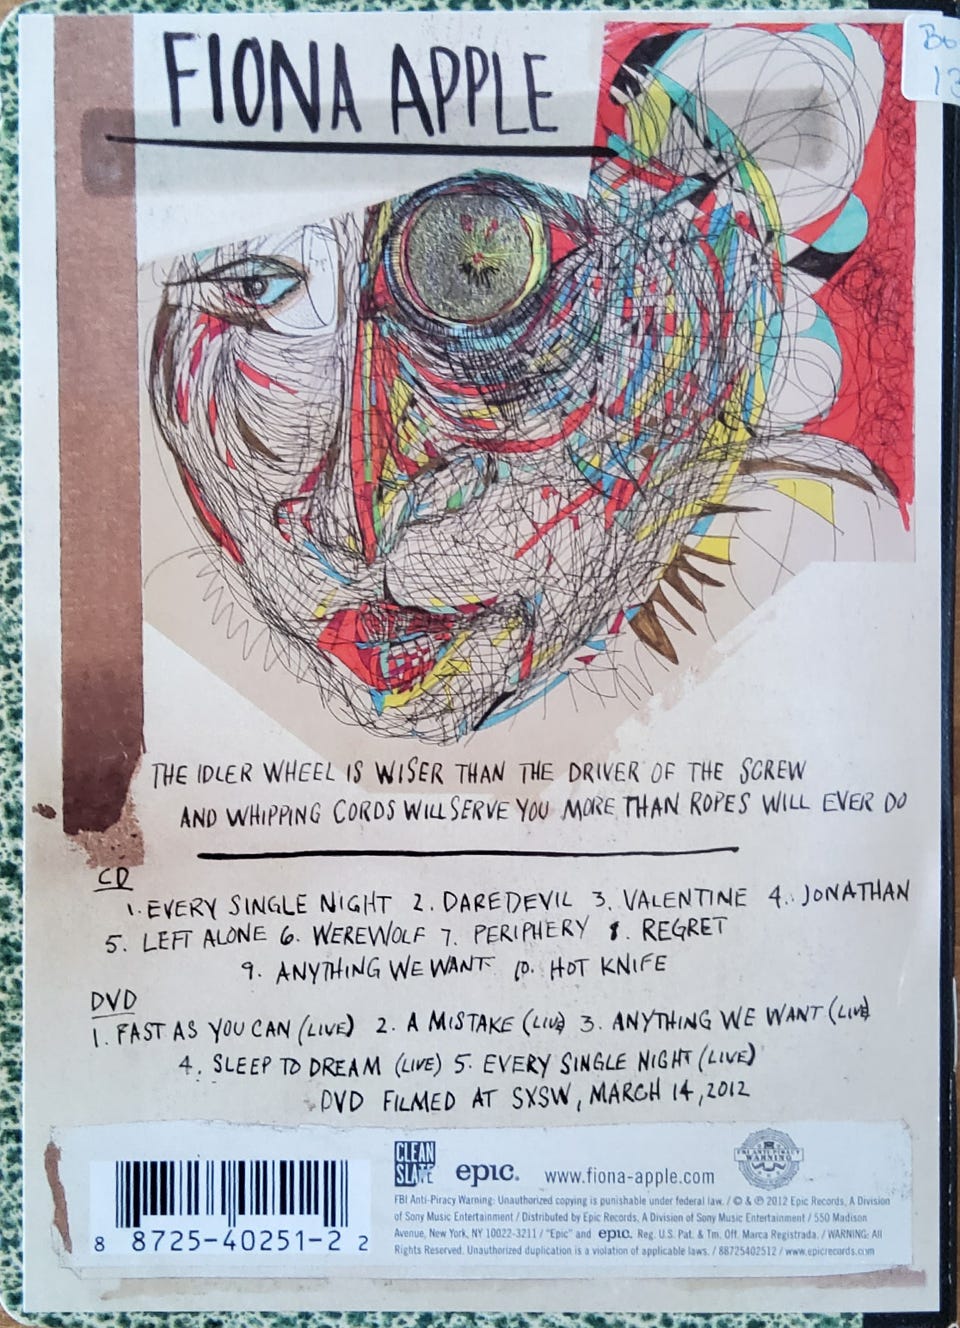 FIONA APPLE
THE IDLER WHEEL IS WISER THAN THE DRIVER OF THE SCREW
AND WHIPPING CORDS WILL SERVE YOU MORE THAN ROPES WILL EVER DO
CD
1. EVERY SINGLE NIGHT 2. DAREDEVIL 3. VALENTINE 4. JONATHAN
5. LEFT ALONE 6. WEREWOLF 7. PERIPHERY 8. REGRET
9. ANYTHING WE WANT 10. HOT KNIFE
DVD
1. FAST AS YOU CAN (LIVE) 2. A MISTAKE (LIVE) 3. ANYTHING WE WANT (LIVE)
4. SLEEP TO DREAM (LIVE) 5. EVERY SINGLE NIGHT (LIVE)
DVD FILMED AT SXSW, MARCH 14, 2012
CLEAN
SLATE
epic.
www.fiona-apple.com
FBI ANTI-PIRACY
WARNING
FBI Anti-Piracy Warning: Unauthorized copying is punishable under federal law. / © & ℗ 2012 Epic Records, A Division
of Sony Music Entertainment / Distributed by Epic Records, A Division of Sony Music Entertainment / 550 Madison
Avenue, New York, NY 10022-3211 / "Epic" and epic. Reg. U.S. Pat. & Tm. Off. Marca Registrada. / WARNING: All
Rights Reserved. Unauthorized duplication is a violation of applicable laws. / 88725402512 / www.epicrecords.com
8 8725-40251-2 2